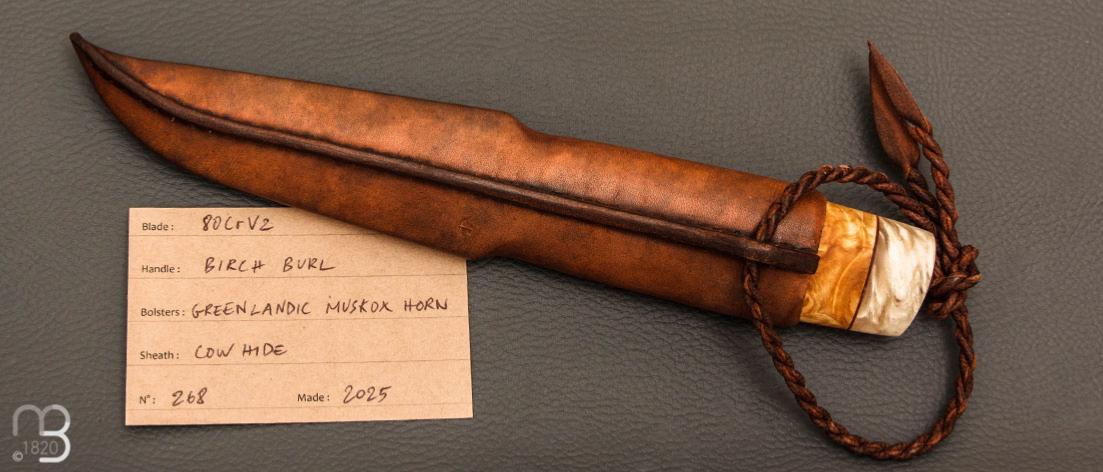 Blade: 80CrV2
Handle: BIRCH BURL
Bolsters: GREENLANDIC MUSKOX HORN
Sheath: COW HIDE
N°: 268 Made: 2025
mB
©1820